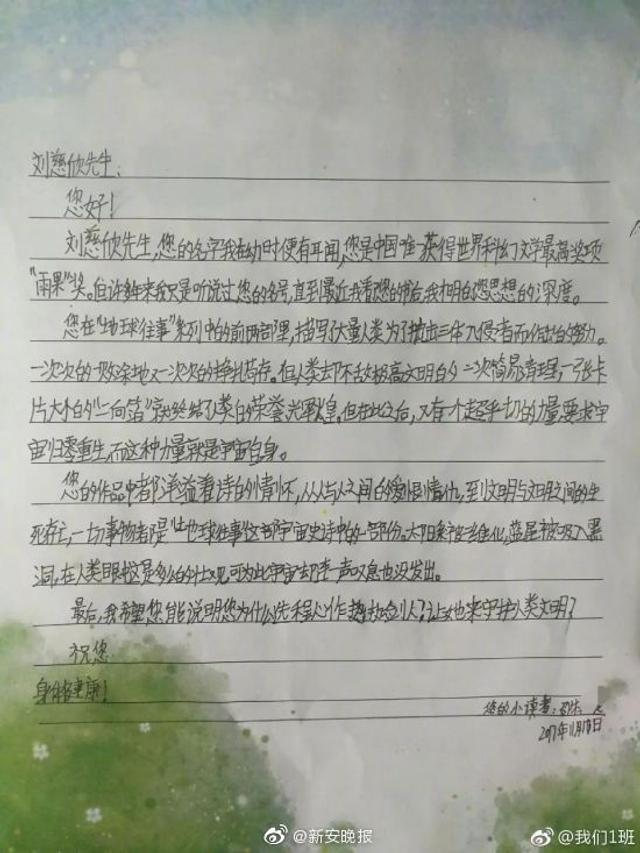 刘慈欣先生:
您好!
刘慈欣先生,您的名字我在幼时便有耳闻,您是中国唯一获得世界科幻文学最高奖项
"雨果"奖。但许多年来我只是听说过您的名号,直到最近我看您的书后,我才明白您思想的深度。
您在"地球往事"系列中的前两部里,描写了大量人类为了抵抗三体入侵者而作出的努力。
一次次的一败涂地又一次次的挣扎苟存。但人类却不敌极高文明的一次简易清理,一张卡
片大小的"二向箔"就终结了人类的荣誉光辉煌。但在此之后,又有一个超乎一切的力量,要求宇
宙归零重生,而这种力量就是宇宙自身。
您的作品中都洋溢着诗的情怀,从人与人之间的爱恨情仇,至到文明与文明之间的生
死存亡,一切事物都是"地球往事"这部宇宙史诗中的一部份。太阳系被二维化,蓝星被吸入黑
洞,在人类眼中这是多么的壮观,可为此宇宙却连一声叹息也没发出。
最后,我希望您能说明您为什么选程心作为执剑人?让她来守护人类文明?
祝您
身体健康!
您的小读者:
2017年11月18日
@新安晚报
@我们1班